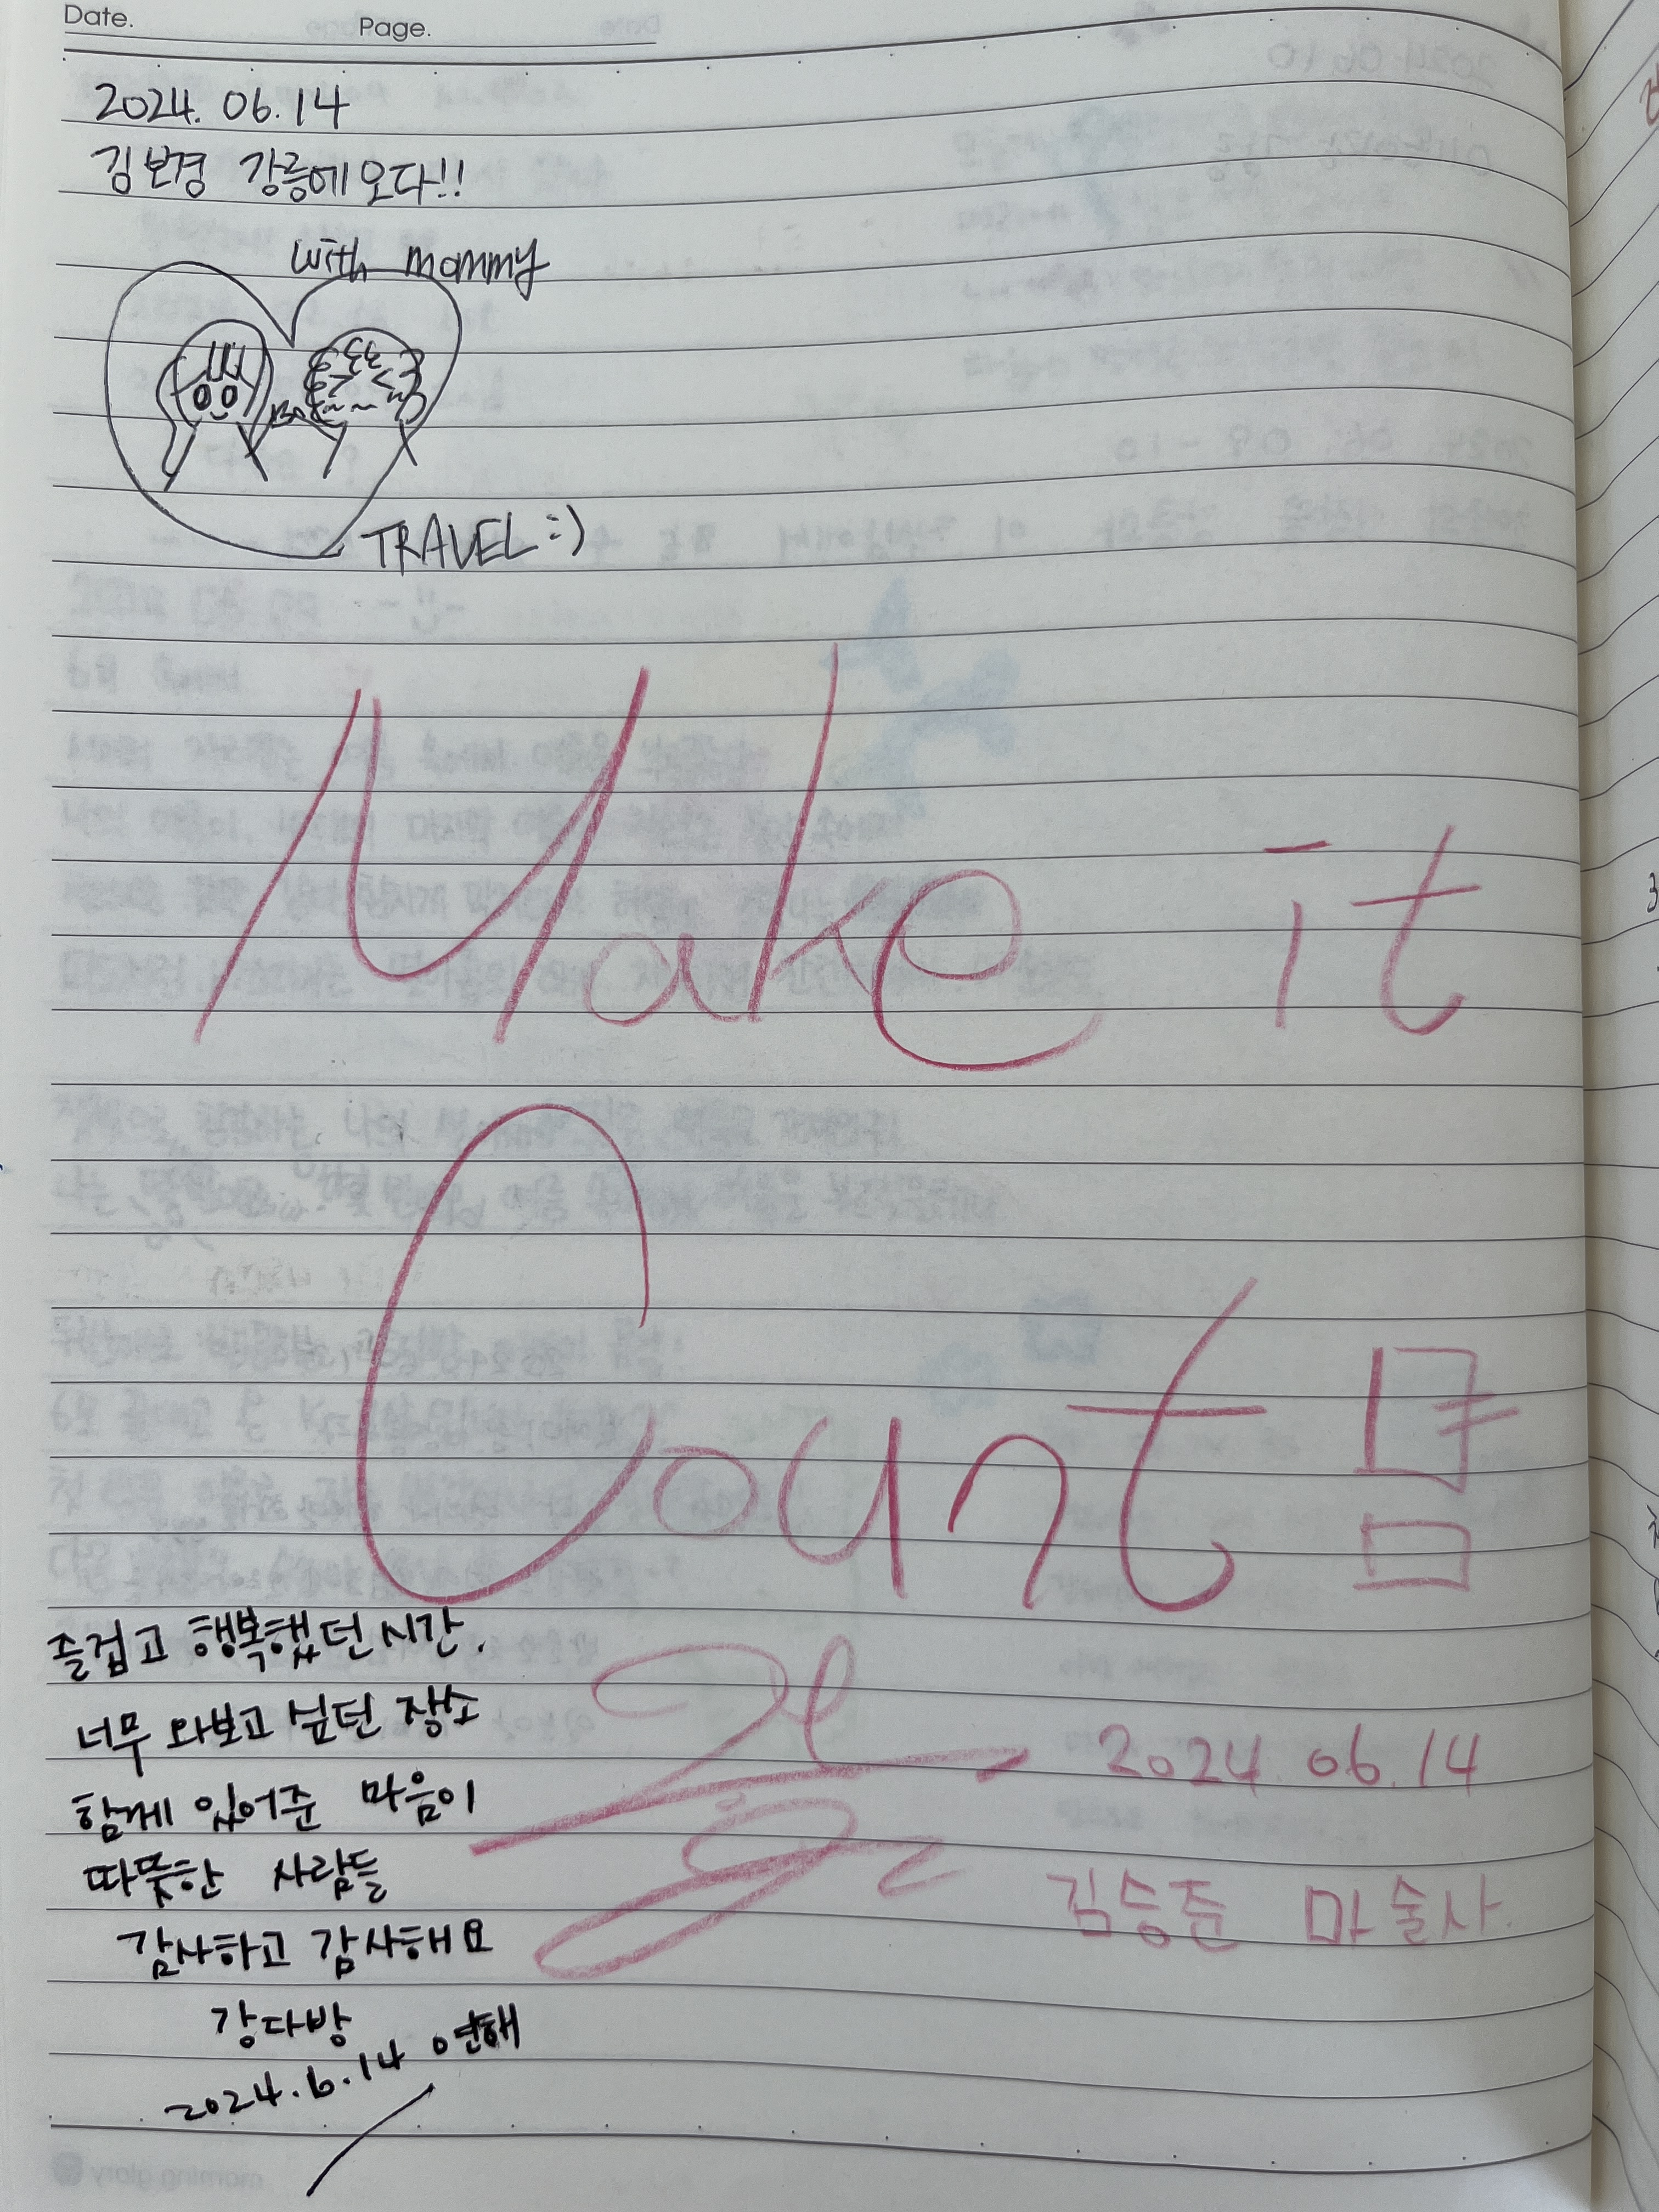 Date.
Page.
2024. 06. 14
김보경 강릉에 오다!!
with mommy
TRAVEL :)
Make it
Count
즐겁고 행복했던 시간.
너무 와보고 싶던 장소
함께 있어준 마음이
따뜻한 사람들
감사하고 감사해요
강다방
2024.6.14 연해
2024. 06. 14
김승준 마술사.